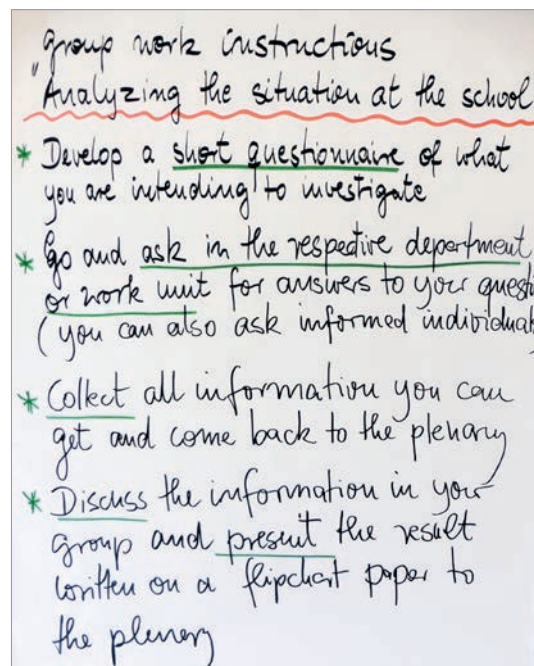 group work instructions
"Analyzing the situation at the school
* Develop a short questionnaire of what
you are intending to investigate
* Go and ask in the respective department
or work unit for answers to your questi
(you can also ask informed individuals
* Collect all information you can
get and come back to the plenary
* Discuss the information in your
group and present the result
written on a flipchart paper to
the plenery